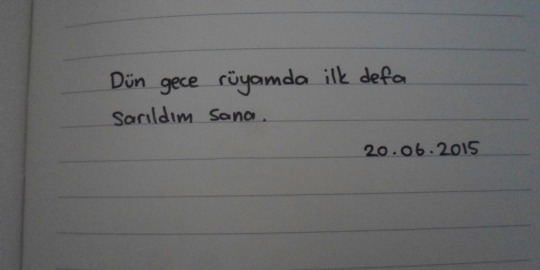 Dün gece rüyamda ilk defa
sarıldım sana.
20.06.2015